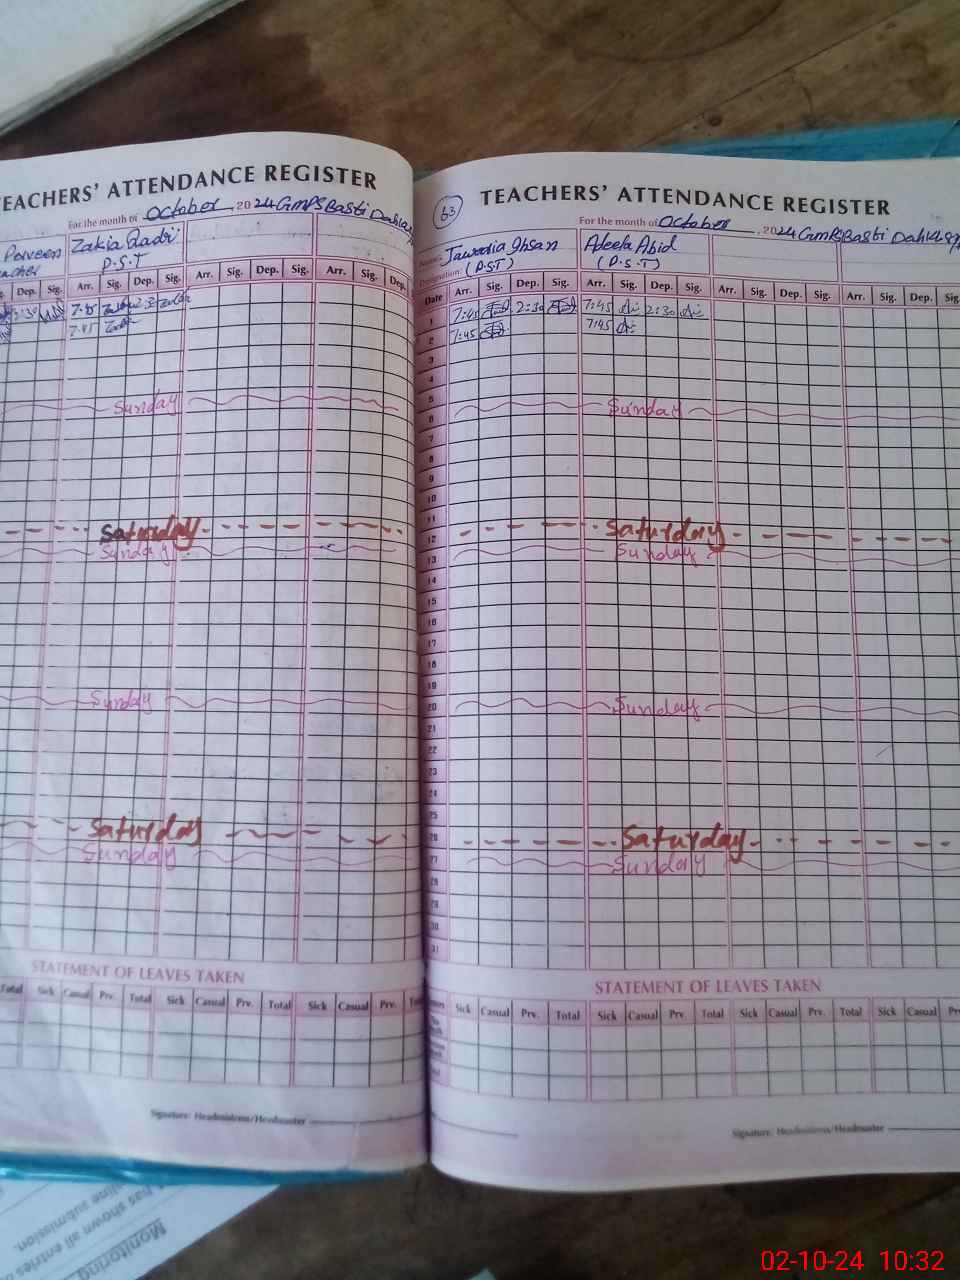 TEACHERS' ATTENDANCE REGISTER
For the month of October, 2024 GMPS Basti
Parveen Zakia Qadri
P.S.T
Dep. Sig. Arr. Sig. Dep. Sig. Arr. Sig. Dep. Sig. Arr. Sig. Dep.
2:30 2:30
7:45
Sunday
Saturday
Sunday
Sunday
Saturday
Sunday
STATEMENT OF LEAVES TAKEN
Total Sick Casual Prv. Total Sick Casual Prv. Total Sick Casual Prv.
Signature: Headmistress/Headmaster
63
TEACHERS' ATTENDANCE REGISTER
For the month of October, 2024 GMPS Basti
Jawaria Ihsan Adeela Abid
Designation: (P.S.T) (P.S.T)
Date Arr. Sig. Dep. Sig. Arr. Sig. Dep. Sig. Arr. Sig. Dep. Sig. Arr. Sig. Dep. Sig.
1 7:45 2:30 7:45 2:30
2 7:45 7:45
3
4
5
6 Sunday
7
8
9
10
11
12 Saturday
13 Sunday
14
15
16
17
18
19
20 Sunday
21
22
23
24
25
26 Saturday
27 Sunday
28
29
30
31
STATEMENT OF LEAVES TAKEN
Sick Casual Prv. Total Sick Casual Prv. Total Sick Casual Prv. Total Sick Casual
Signature: Headmistress/Headmaster
Monitoring
has shown all entries
line submission.
02-10-24 10:32